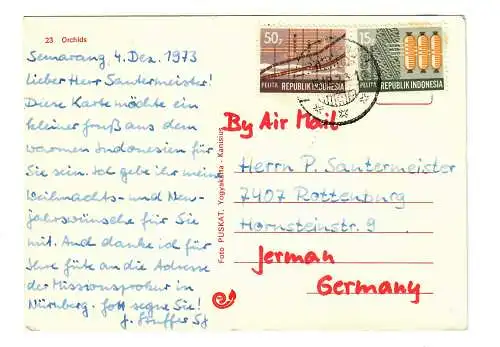 23. Orchids
Semarang, 4. Dez. 1973
Lieber Herr Santermeister!
Diese Karte möchte ein
kleiner Gruß aus dem
warmen Indonesien für
Sie sein. Ich gebe ihr meine
Weihnachts- und Neu-
jahrswünsche für Sie
mit. Und danke ich für
Ihre Güte an die Adresse
der Missionsprokur in
Nürnberg. Gott segne Sie!
J. Stuffer SJ
Foto PUSKAT, Yogyakarta - Kanisius
50,-
PELITA REPUBLIK INDONESIA
15,-
PELITA REPUBLIK INDONESIA
By Air Mail
Herrn P. Santermeister
7407 Rottenburg
Hornsteinstr. 9
Jerman
Germany